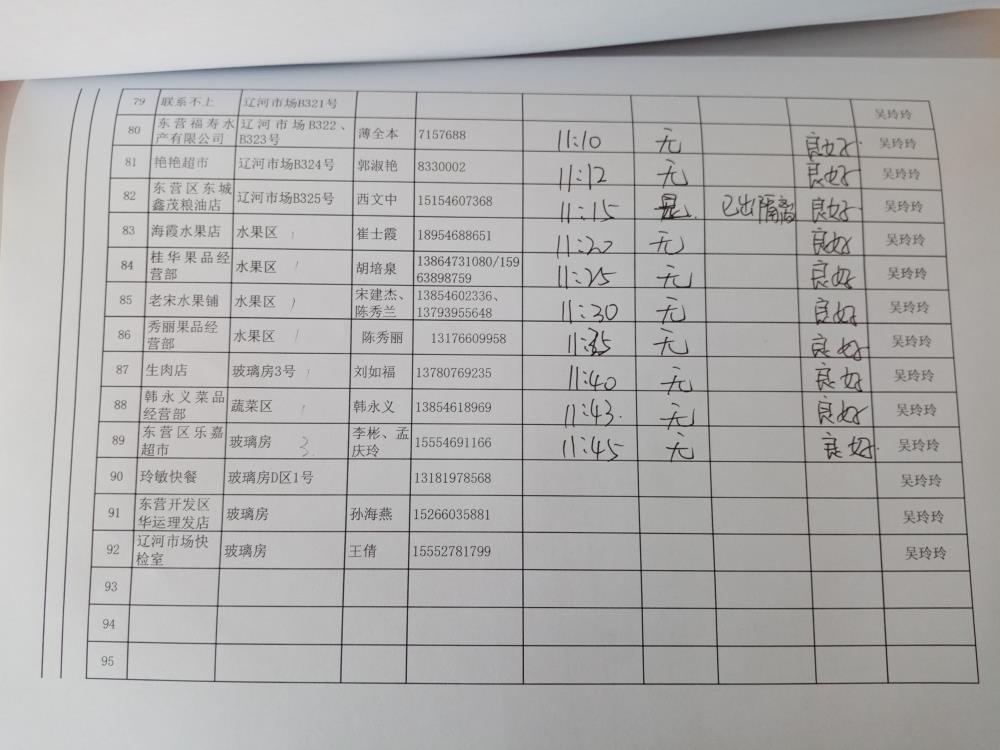 79 联系不上 辽河市场B321号 吴玲玲
80 东营福寿水产有限公司 辽河市场B322、B323号 薄全本 7157688 11:10 无 良好 吴玲玲
81 艳艳超市 辽河市场B324号 郭淑艳 8330002 11:12 无 良好 吴玲玲
82 东营区东城鑫茂粮油店 辽河市场B325号 西文中 15154607368 11:15 是 已出隔离 良好 吴玲玲
83 海霞水果店 水果区 崔士霞 18954688651 11:20 无 良好 吴玲玲
84 桂华果品经营部 水果区 胡培泉 13864731080/15963898759 11:25 无 良好 吴玲玲
85 老宋水果铺 水果区 宋建杰、陈秀兰 13854602336、13793955648 11:30 无 良好 吴玲玲
86 秀丽果品经营部 水果区 陈秀丽 13176609958 11:35 无 良好 吴玲玲
87 生肉店 玻璃房3号 刘如福 13780769235 11:40 无 良好 吴玲玲
88 韩永义菜品经营部 蔬菜区 韩永义 13854618969 11:43. 无 良好 吴玲玲
89 东营区乐嘉超市 玻璃房 3. 李彬、孟庆玲 15554691166 11:45 无 良好 吴玲玲
90 玲敏快餐 玻璃房D区1号 13181978568 吴玲玲
91 东营开发区华运理发店 玻璃房 孙海燕 15266035881 吴玲玲
92 辽河市场快检室 玻璃房 王倩 15552781799 吴玲玲
93
94
95